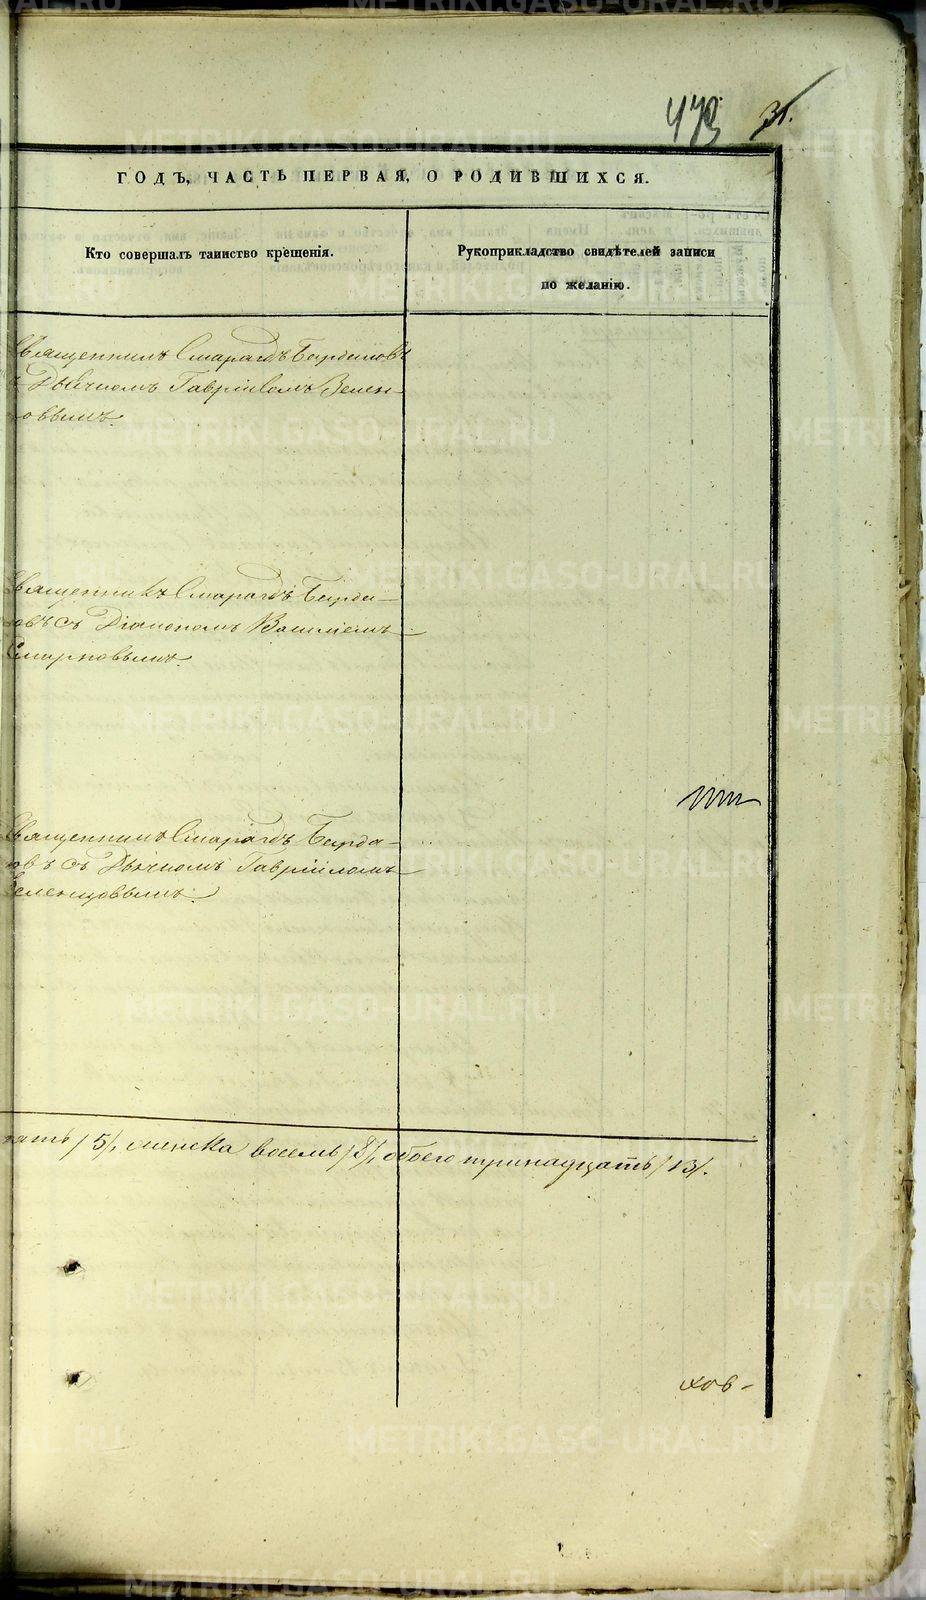 473 31.
ГОДЪ, ЧАСТЬ ПЕРВАЯ, О РОДИВШИХСЯ.
Кто совершалъ таинство крещенія.
Рукоприкладство свидѣтелей записи
по желанію.
вященникъ Смарагдъ
Дьячкомъ Гавріиломъ Зелен-
овымъ.
вященникъ Смарагдъ Бирда-
овъ съ Діакономъ Василіемъ
Смирновымъ.
вященникъ Смарагдъ Бирда-
овъ съ Дьячкомъ Гавріиломъ
еленцовымъ.
пять /5/, женска восемь /8/, обоего тринадцать /13/.
ков-
METRIKI.GASO-URAL.RU